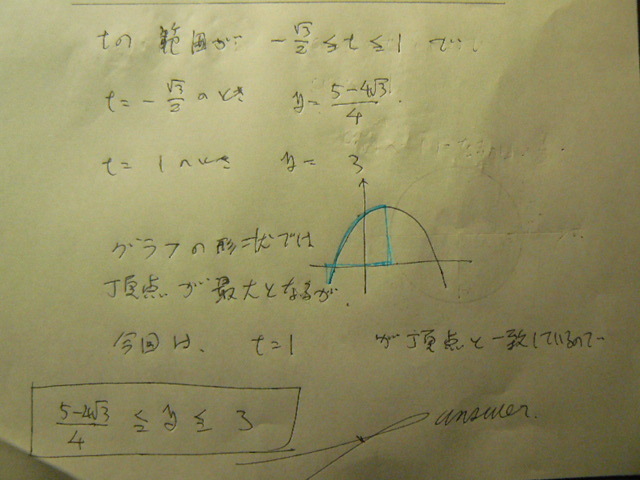 tの 範囲が -√3/2 ≤ t ≤ 1 で
t = -√3/2 のとき y = (5-4√3)/4
t = 1 のとき y = 3
グラフの形状では
頂点が最大となるが
今回は、 t=1 が頂点と一致しているので
(5-4√3)/4 ≤ y ≤ 3 answer.